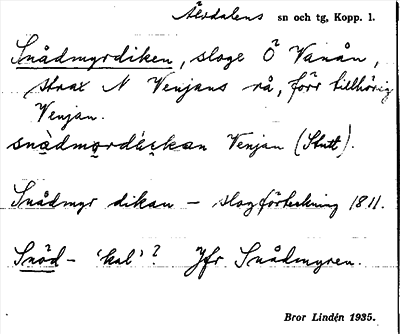 Älvdalens sn och tg, Kopp. l.
Snådmyrdiken, sloge Ö Vanån,
strax N Venjans rå, förr tillhörig
Venjan.
snàdmo̱rdi̱kan Venjan (Stutt).
Snådmyr dikan – slogförteckning 1811.
Snöd- 'kal'? Jfr Snådmyren.
Bror Lindén 1935.